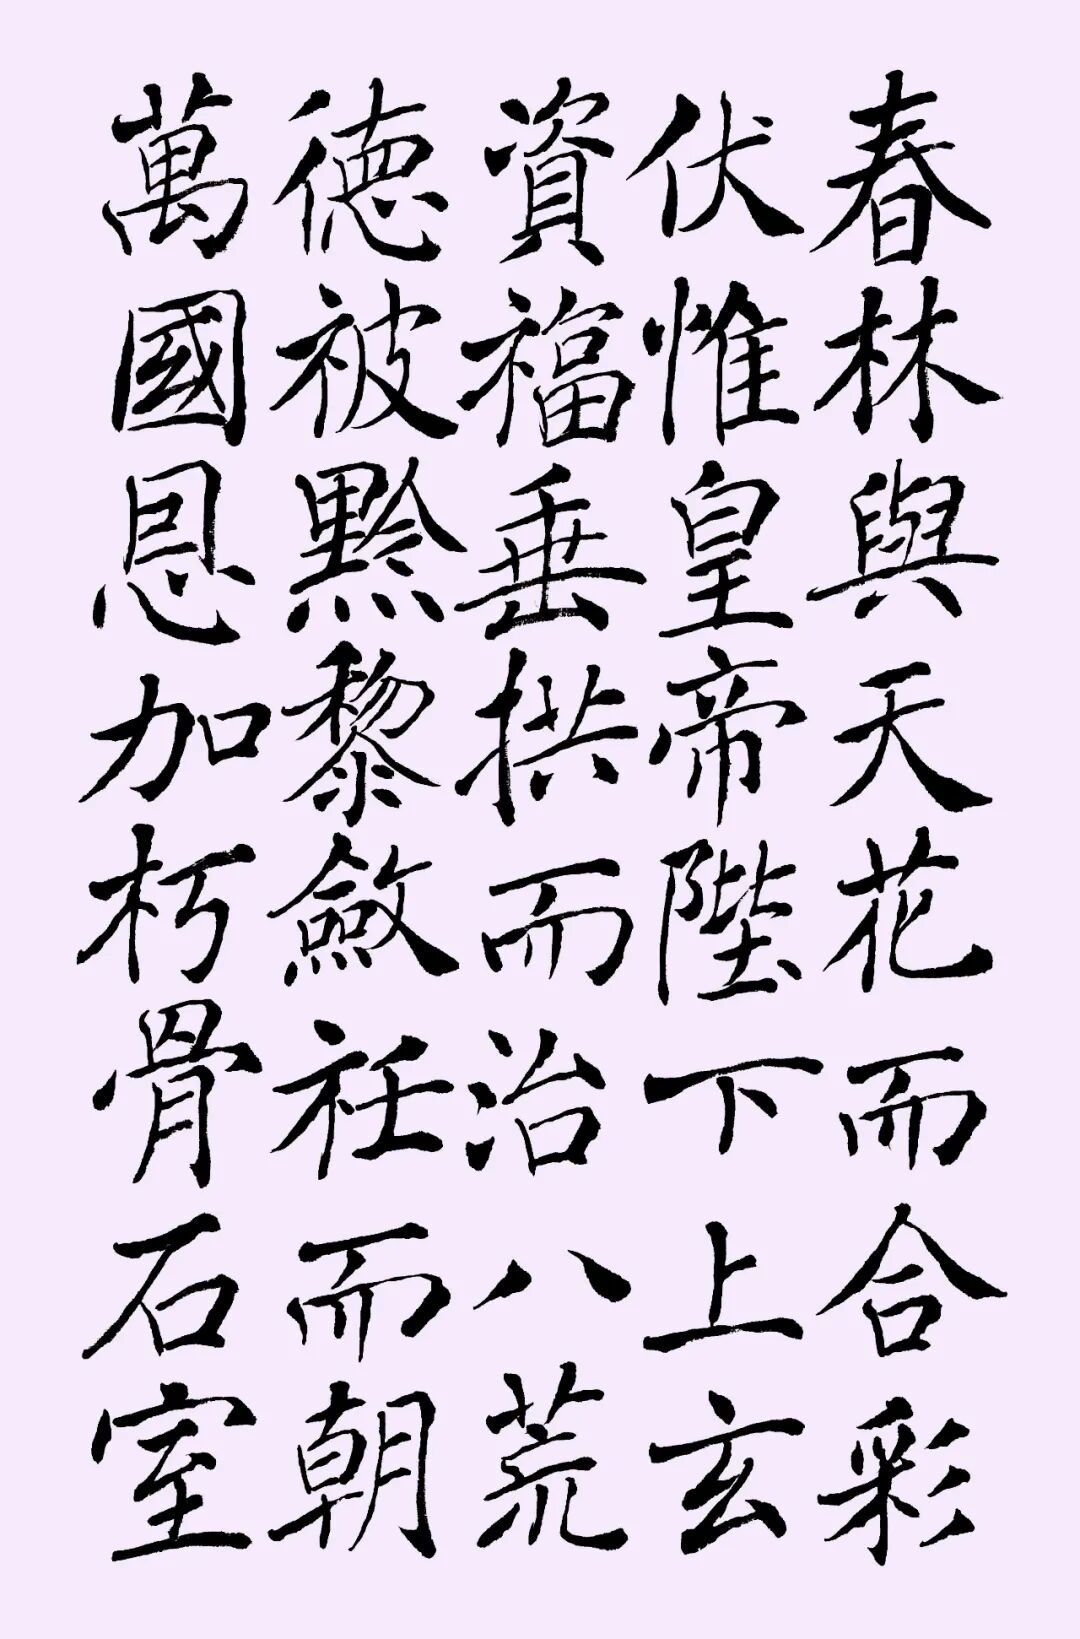 春林與天花而合彩
伏惟皇帝陛下上玄
資福垂拱而治八荒
德被黔黎斂衽而朝
萬國恩加朽骨石室